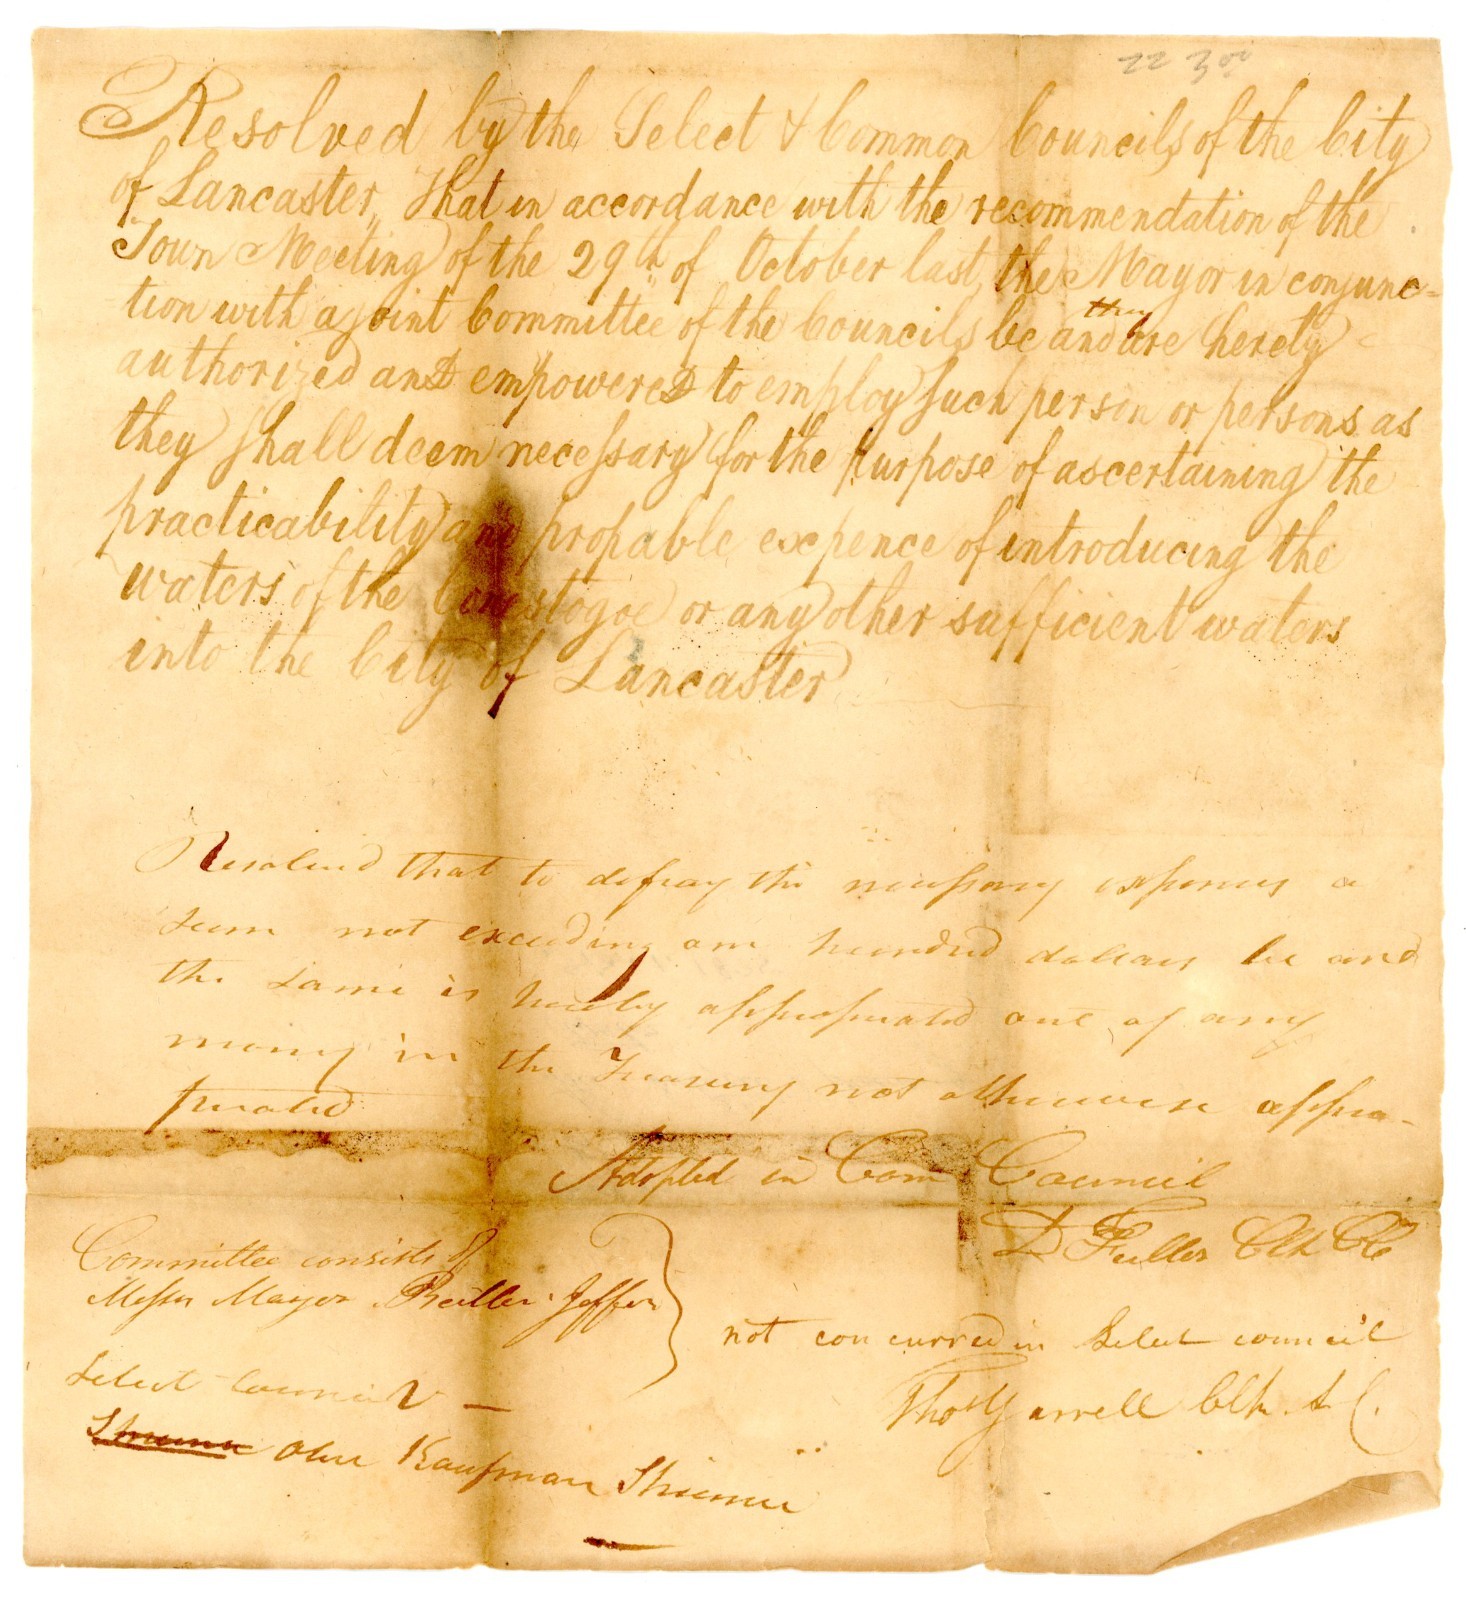 22 3
Resolved by the Select & Common Councils of the City
of Lancaster, That in accordance with the recommendation of the
Town Meeting of the 29th of October last, the Mayor in conjunc-
tion with a joint Committee of the Councils be and they are hereby
authorized and empowered to employ such person or persons as
they shall deem necessary for the purpose of ascertaining the
practicability and propable expence of introducing the
waters of the Conestogoe or any other sufficient waters
into the City of Lancaster
Resolved that to defray the necessary expences a
sum not exceeding one hundred dollars be and
the same is hereby appropriated out of any
money in the Treasury not otherwise appro-
priated
Adopted in Com Council
D Fuller Clk CC
Committee consists of
Messrs Mayor
not concurred in Select council
Select Council —
Thos Yarrell Clk. S C.
Kaufman